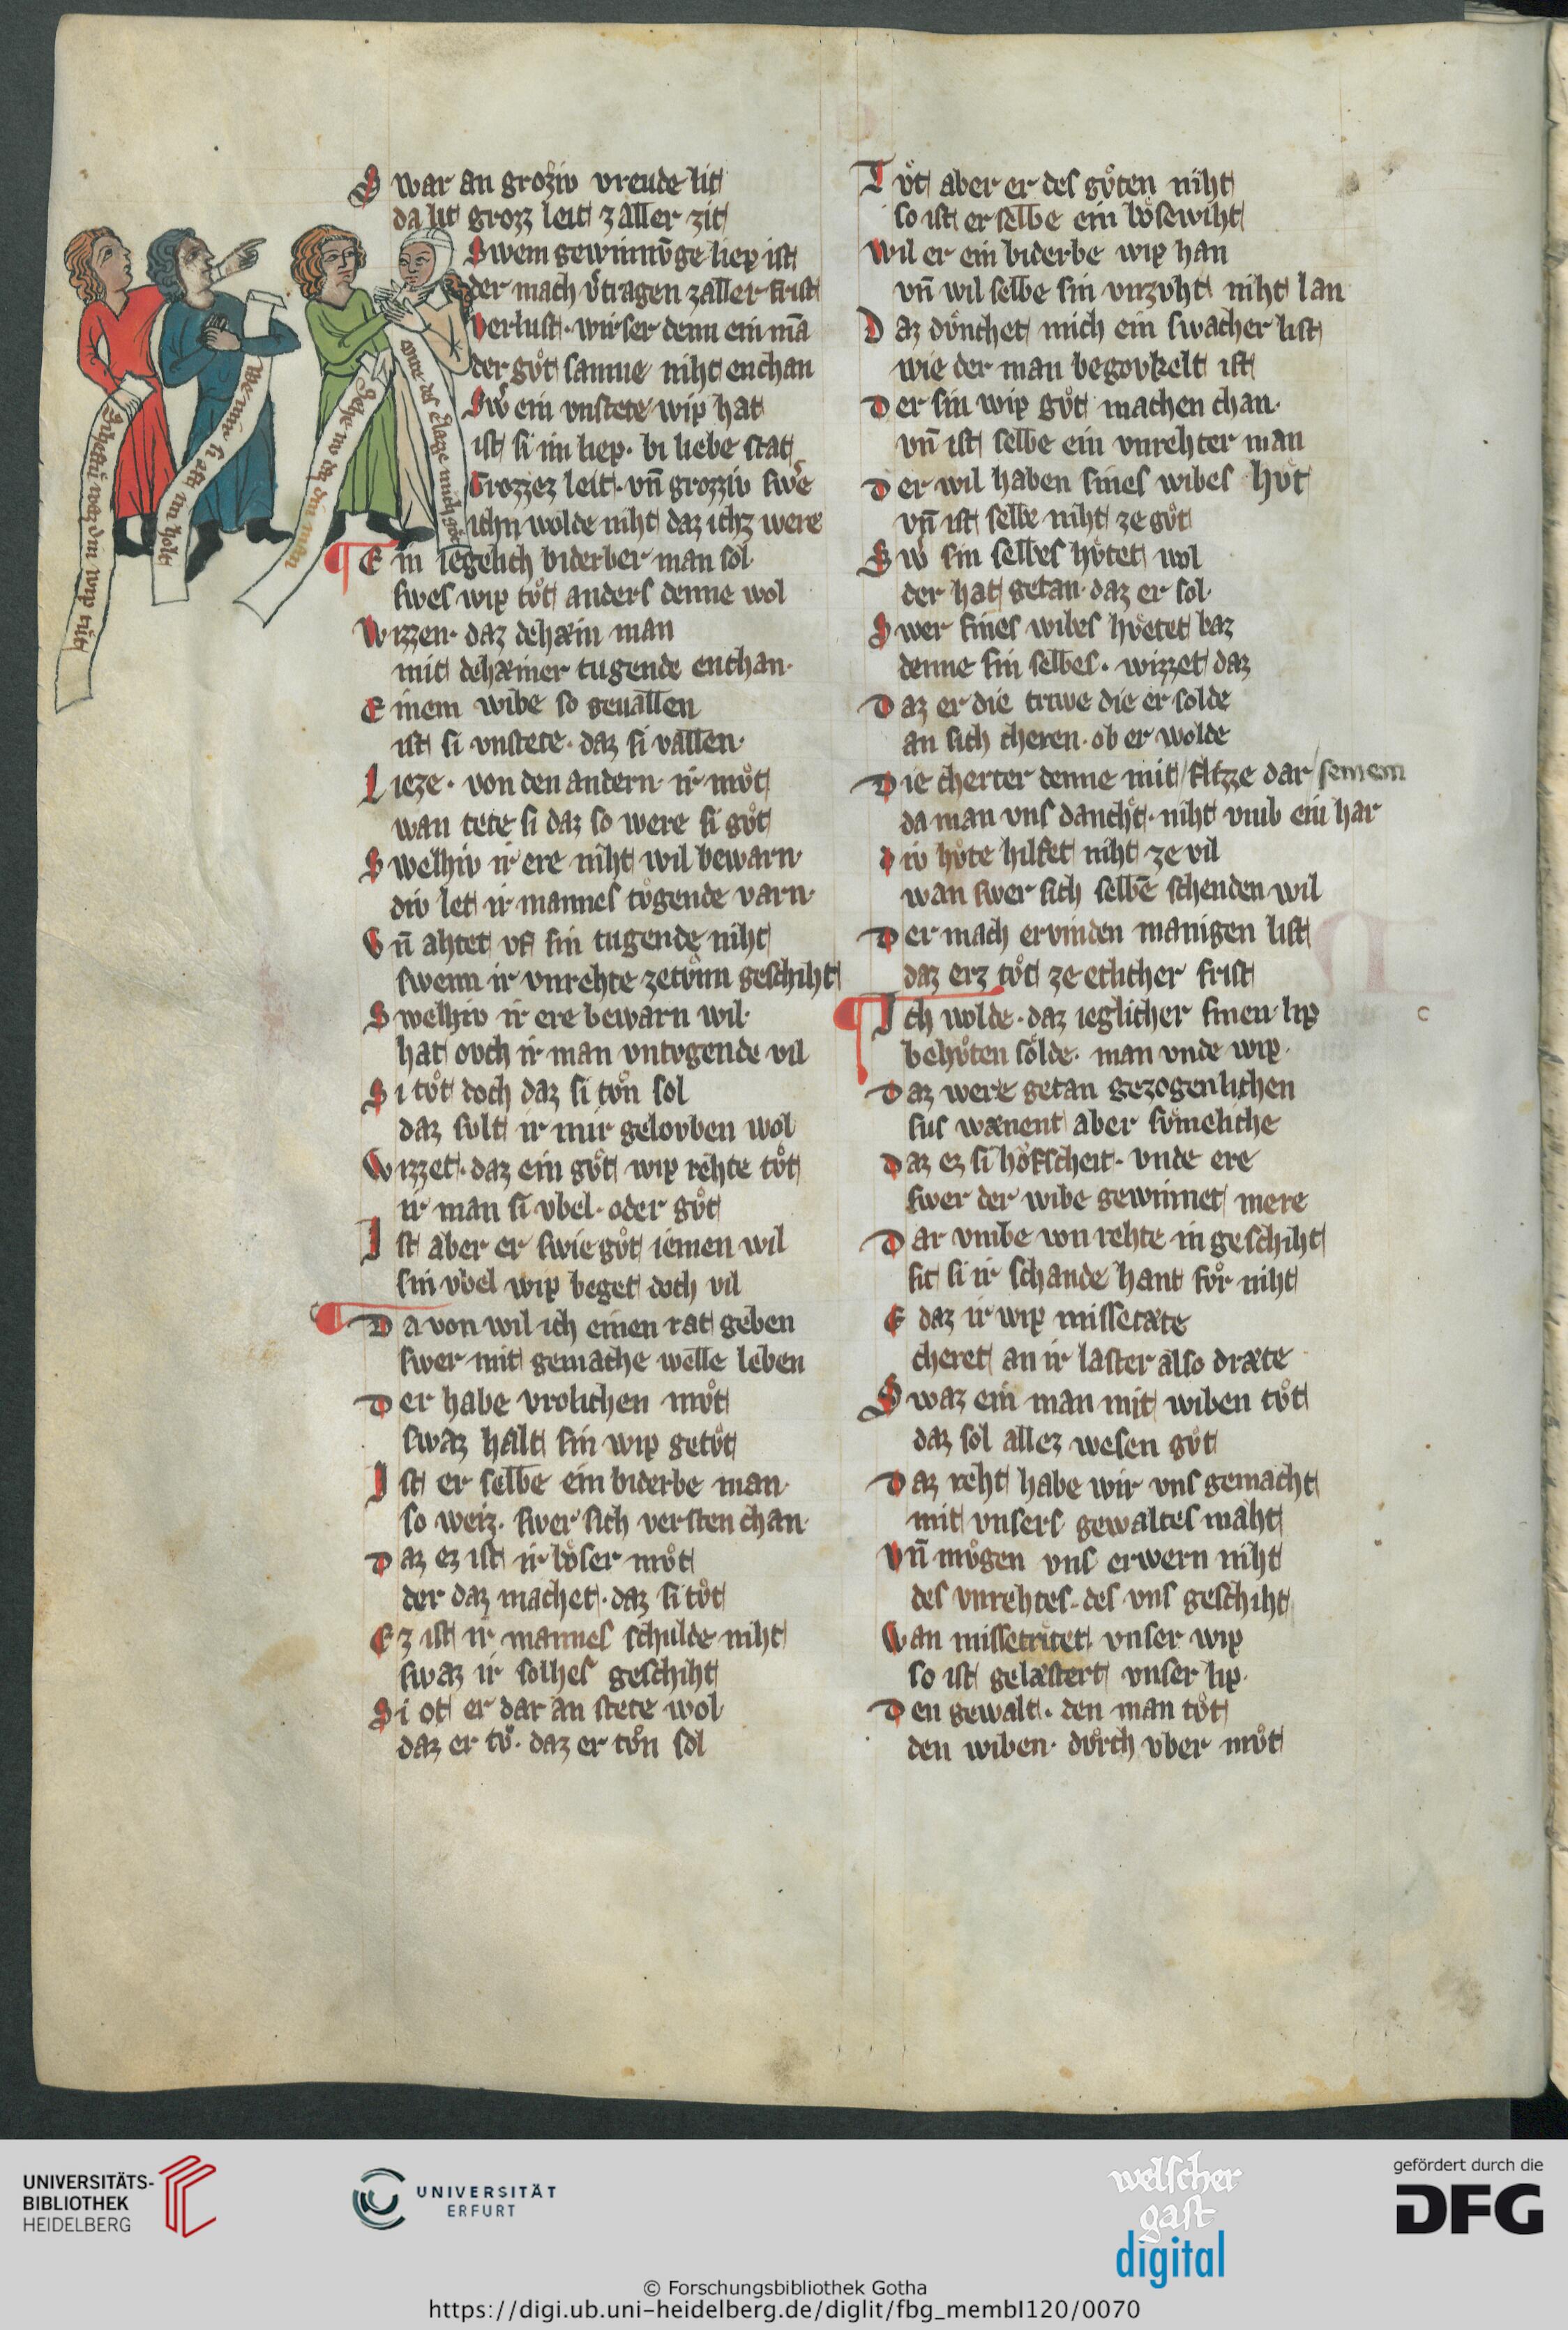 S war an groziv vreude lit
da lit grozz leit zaller zit
Swem gewinnūge liep ist
der mach v̾tragen zaller frist
Verlust· wirser denn ein mā
der gůt samne niht enchan
Sw̾ ein vnstete wip hat
ist si im liep· bi liebe stat
Grozzez leit· vn̄ grozziv swe̾
ichn wolde niht daz ichz were
Ein iegelich biderber man sol
swes wip tůt anders denne wol
Wizzen· daz dehæin man
mit dehæiner tugende enchan·
Einem wibe so geuallen
ist si vnstete· daz si vallen·
Lieze· von den andern· ir můt
wan tete si daz so were si gůt
Swelhiv ir ere niht wil bewarn·
div let ir mannes tugende varn·
Vn̄ ahtet vf sin tugende niht
swenn ir vnrehte zetůnn geschiht
Swelhiv ir ere bewarn wil·
hat ovch ir man vntvgende vil
Si tůt doch daz si tůn sol
daz sult ir mir gelovben wol
Wizzet· daz ein gůt wip rehte tůt
ir man si vbel· oder gůt
Ist aber er swie gůt iemen wil
sin vbel wip beget doch vil
Da von wil ich einen rat geben
swer mit gemache welle leben
Der habe vrolichen můt
swaz halt sin wip getůt
Ist er selbe ein biderbe man·
so weiz· swer sich versten chan·
Daz ez ist ir bôser můt
der daz machet· daz si tůt
Ez ist ir mannes schulde niht
swaz ir solhes geschiht
Si ot er dar an stete wol
daz er tů· daz er tůn sol
Tůt aber er des gůten niht
so ist er selbe ein bôsewiht
Wil er ein biderbe wip han
vn̄ wil selbe sin vnzvht niht lan
Daz dvnchet mich ein swacher list
wie der man begovkelt ist
Der sin wip gůt machen chan·
vn̄ ist selbe ein vnrehter man
Der wil haben sines wibes hůt
vn̄ ist selbe niht ze gůt
Sw̾ sin selbes hůtet wol
der hat getan· daz er sol·
Swer sines wibes hůetet baz
denne sin selbes· wizzet daz
Daz er die triwe die er solde
an sich cheren· ob er wolde
Die cherter denne mit / flizze dar / seinem
da man vns dancht· niht vmb ein har
Div hůte hilfet niht ze vil
wan swer sich selbē schenden wil
Der mach ervinden manigen list
daz erz tůt ze etlicher frist
Ich wolde· daz ieglicher sinen lip
behůten solde· man vnde wip·
Daz were getan gezogenlichen
sus wænent aber sůmeliche
Daz ez si hôfscheit· vnde ere
swer der wibe gewinnet mere
Dar vmbe von rehte in geschiht
sit si ir schande hant fůr niht
E daz ir wip missetæte
cheret an ir laster also dræte
Swaz ein man mit wiben tůt
daz sol allez wesen gůt
Daz reht habe wir vns gemacht
mit vnsers gewaltes maht
Vn̄ můgen vns erwern niht
des vnrehtes· des vns geschiht
Wan missetritet vnser wip
so ist gelæstert vnser lip·
Den gewalt· den man tůt
den wiben· durch vber můt
UNIVERSITÄTS-
BIBLIOTHEK
HEIDELBERG
UNIVERSITÄT
ERFURT
welscher
gast
digital
gefördert durch die
DFG
© Forschungsbibliothek Gotha
https://digi.ub.uni-heidelberg.de/diglit/fbg_membI120/0070